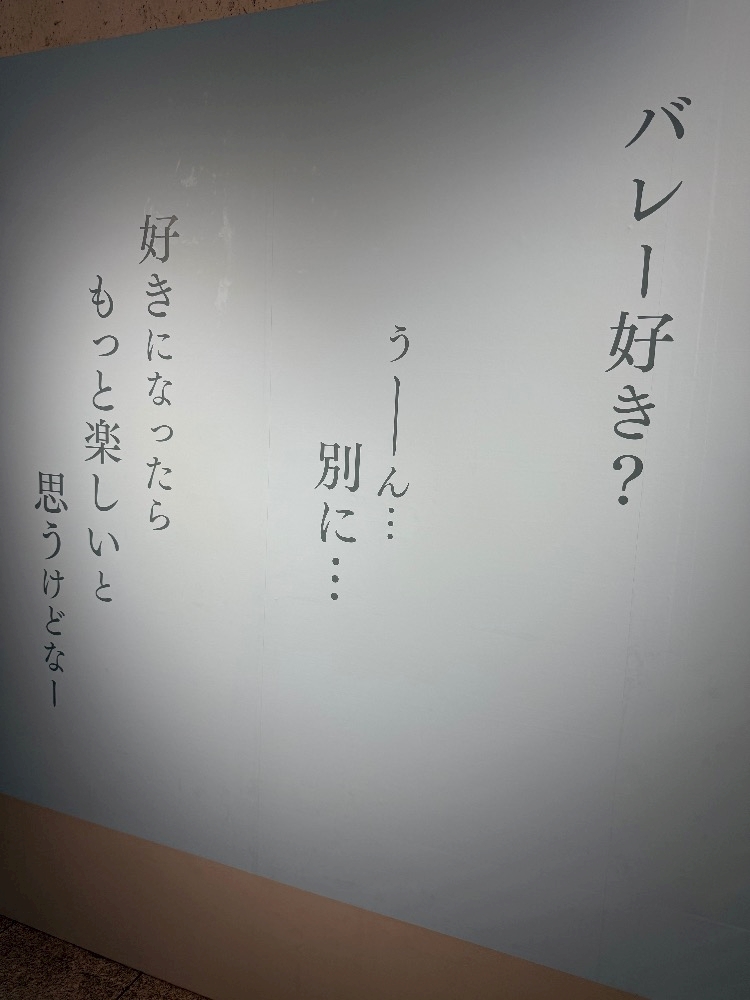 バレー好き?
うーん…
別に…
好きになったら
もっと楽しいと
思うけどなー